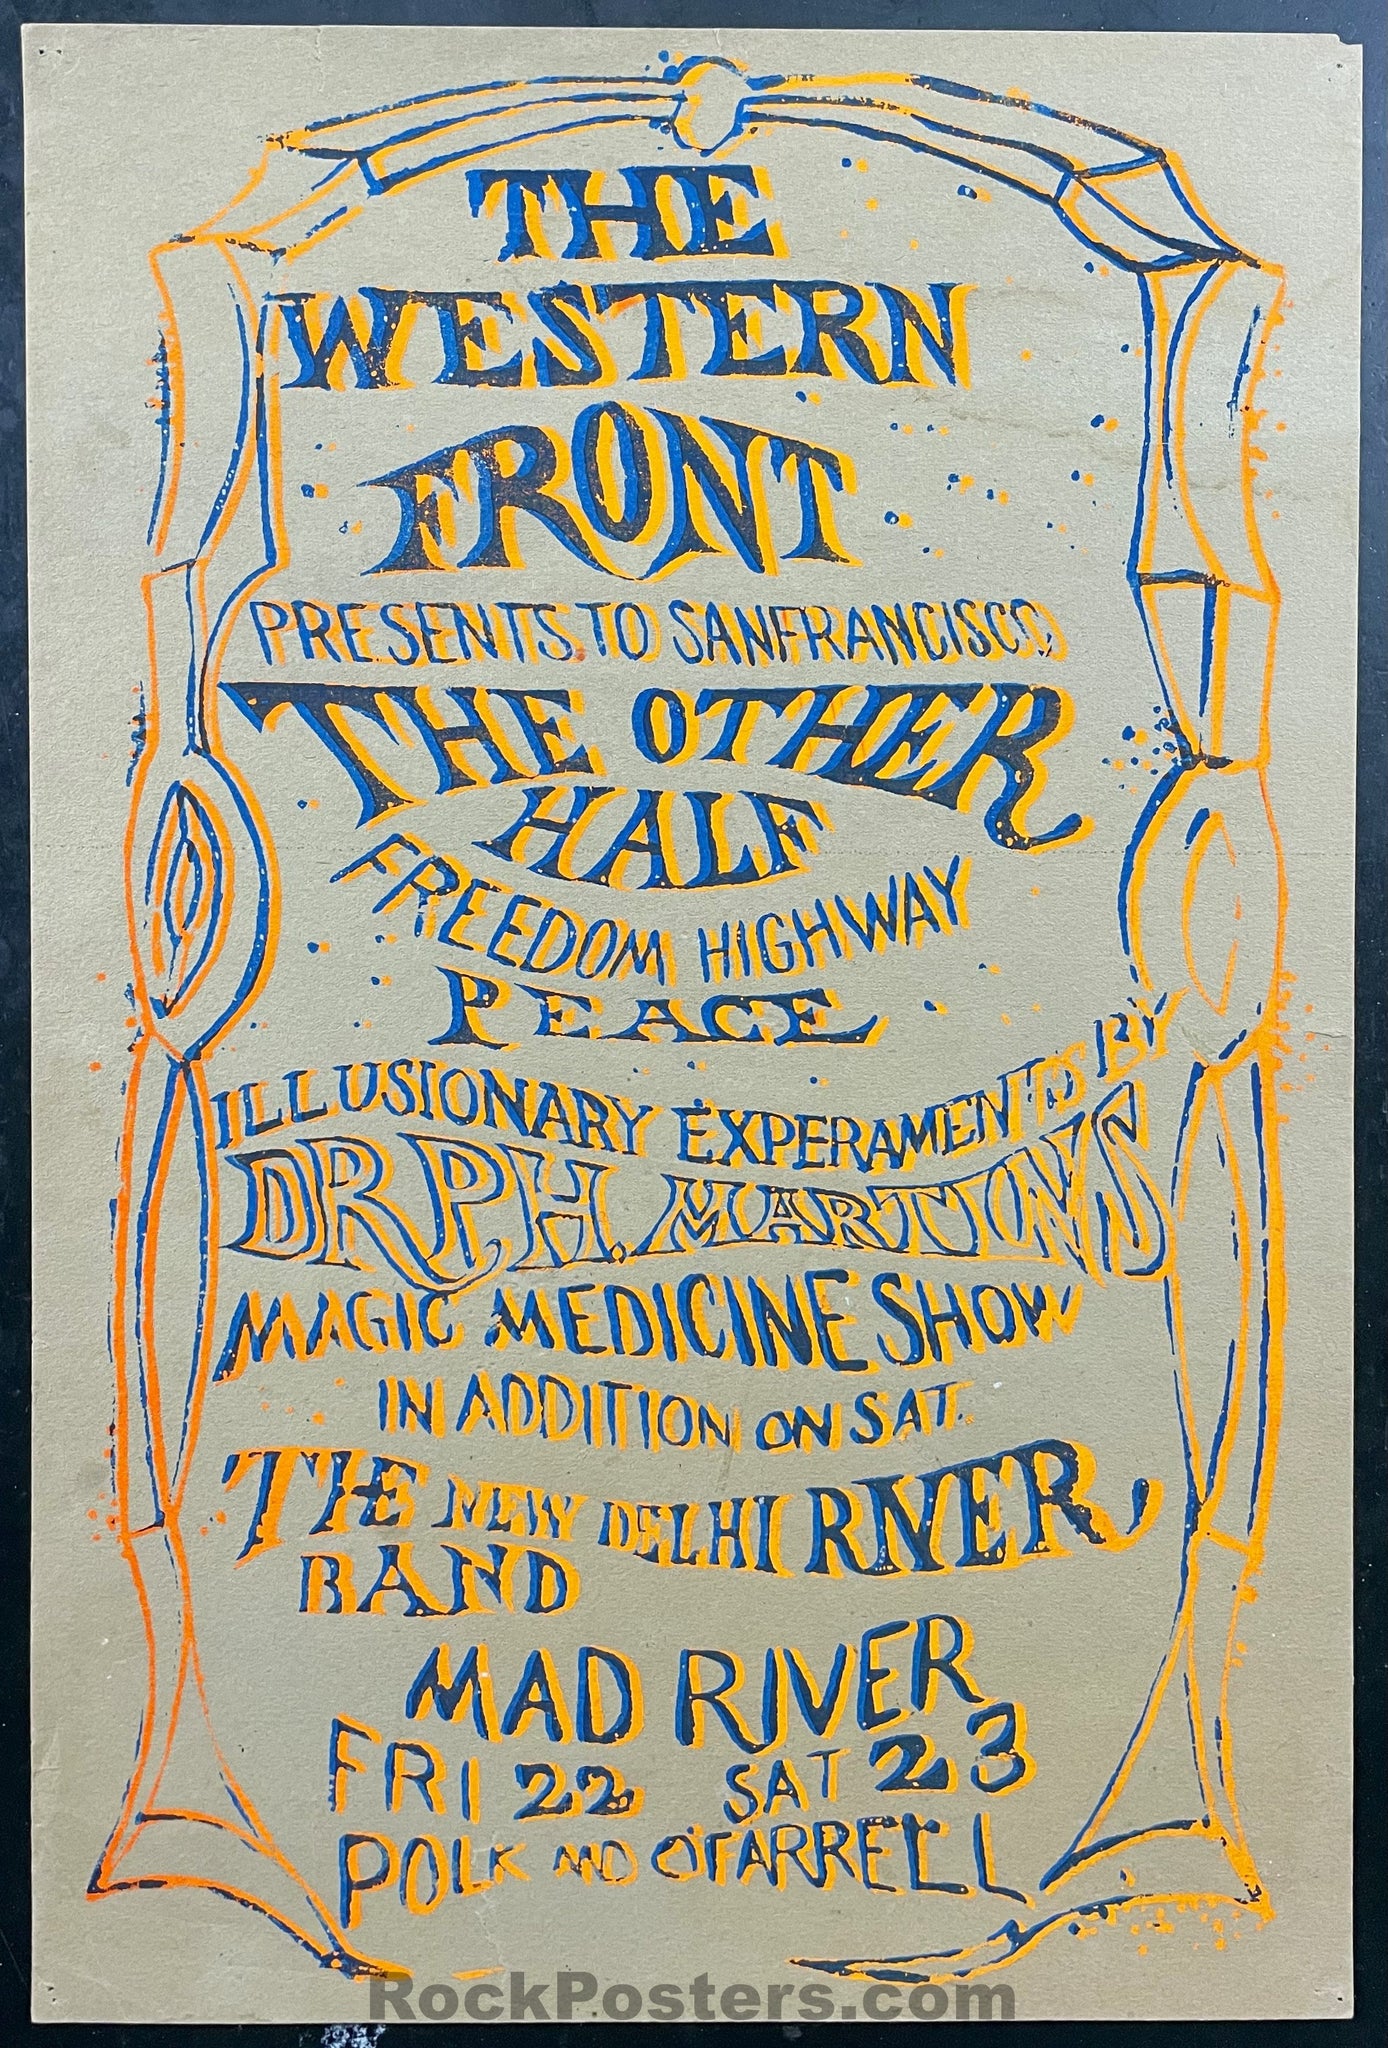 THE
WESTERN
FRONT
PRESENTS TO SANFRANCISCO
THE OTHER
HALF
FREEDOM HIGHWAY
PEACE
ILLUSIONARY EXPERAMENTS BY
DR P.H. MARTINS
MAGIC MEDICINE SHOW
IN ADDITION ON SAT.
THE NEW DELHI RIVER,
BAND
MAD RIVER
FRI 22 SAT 23
POLK AND O'FARRELL
RockPosters.com